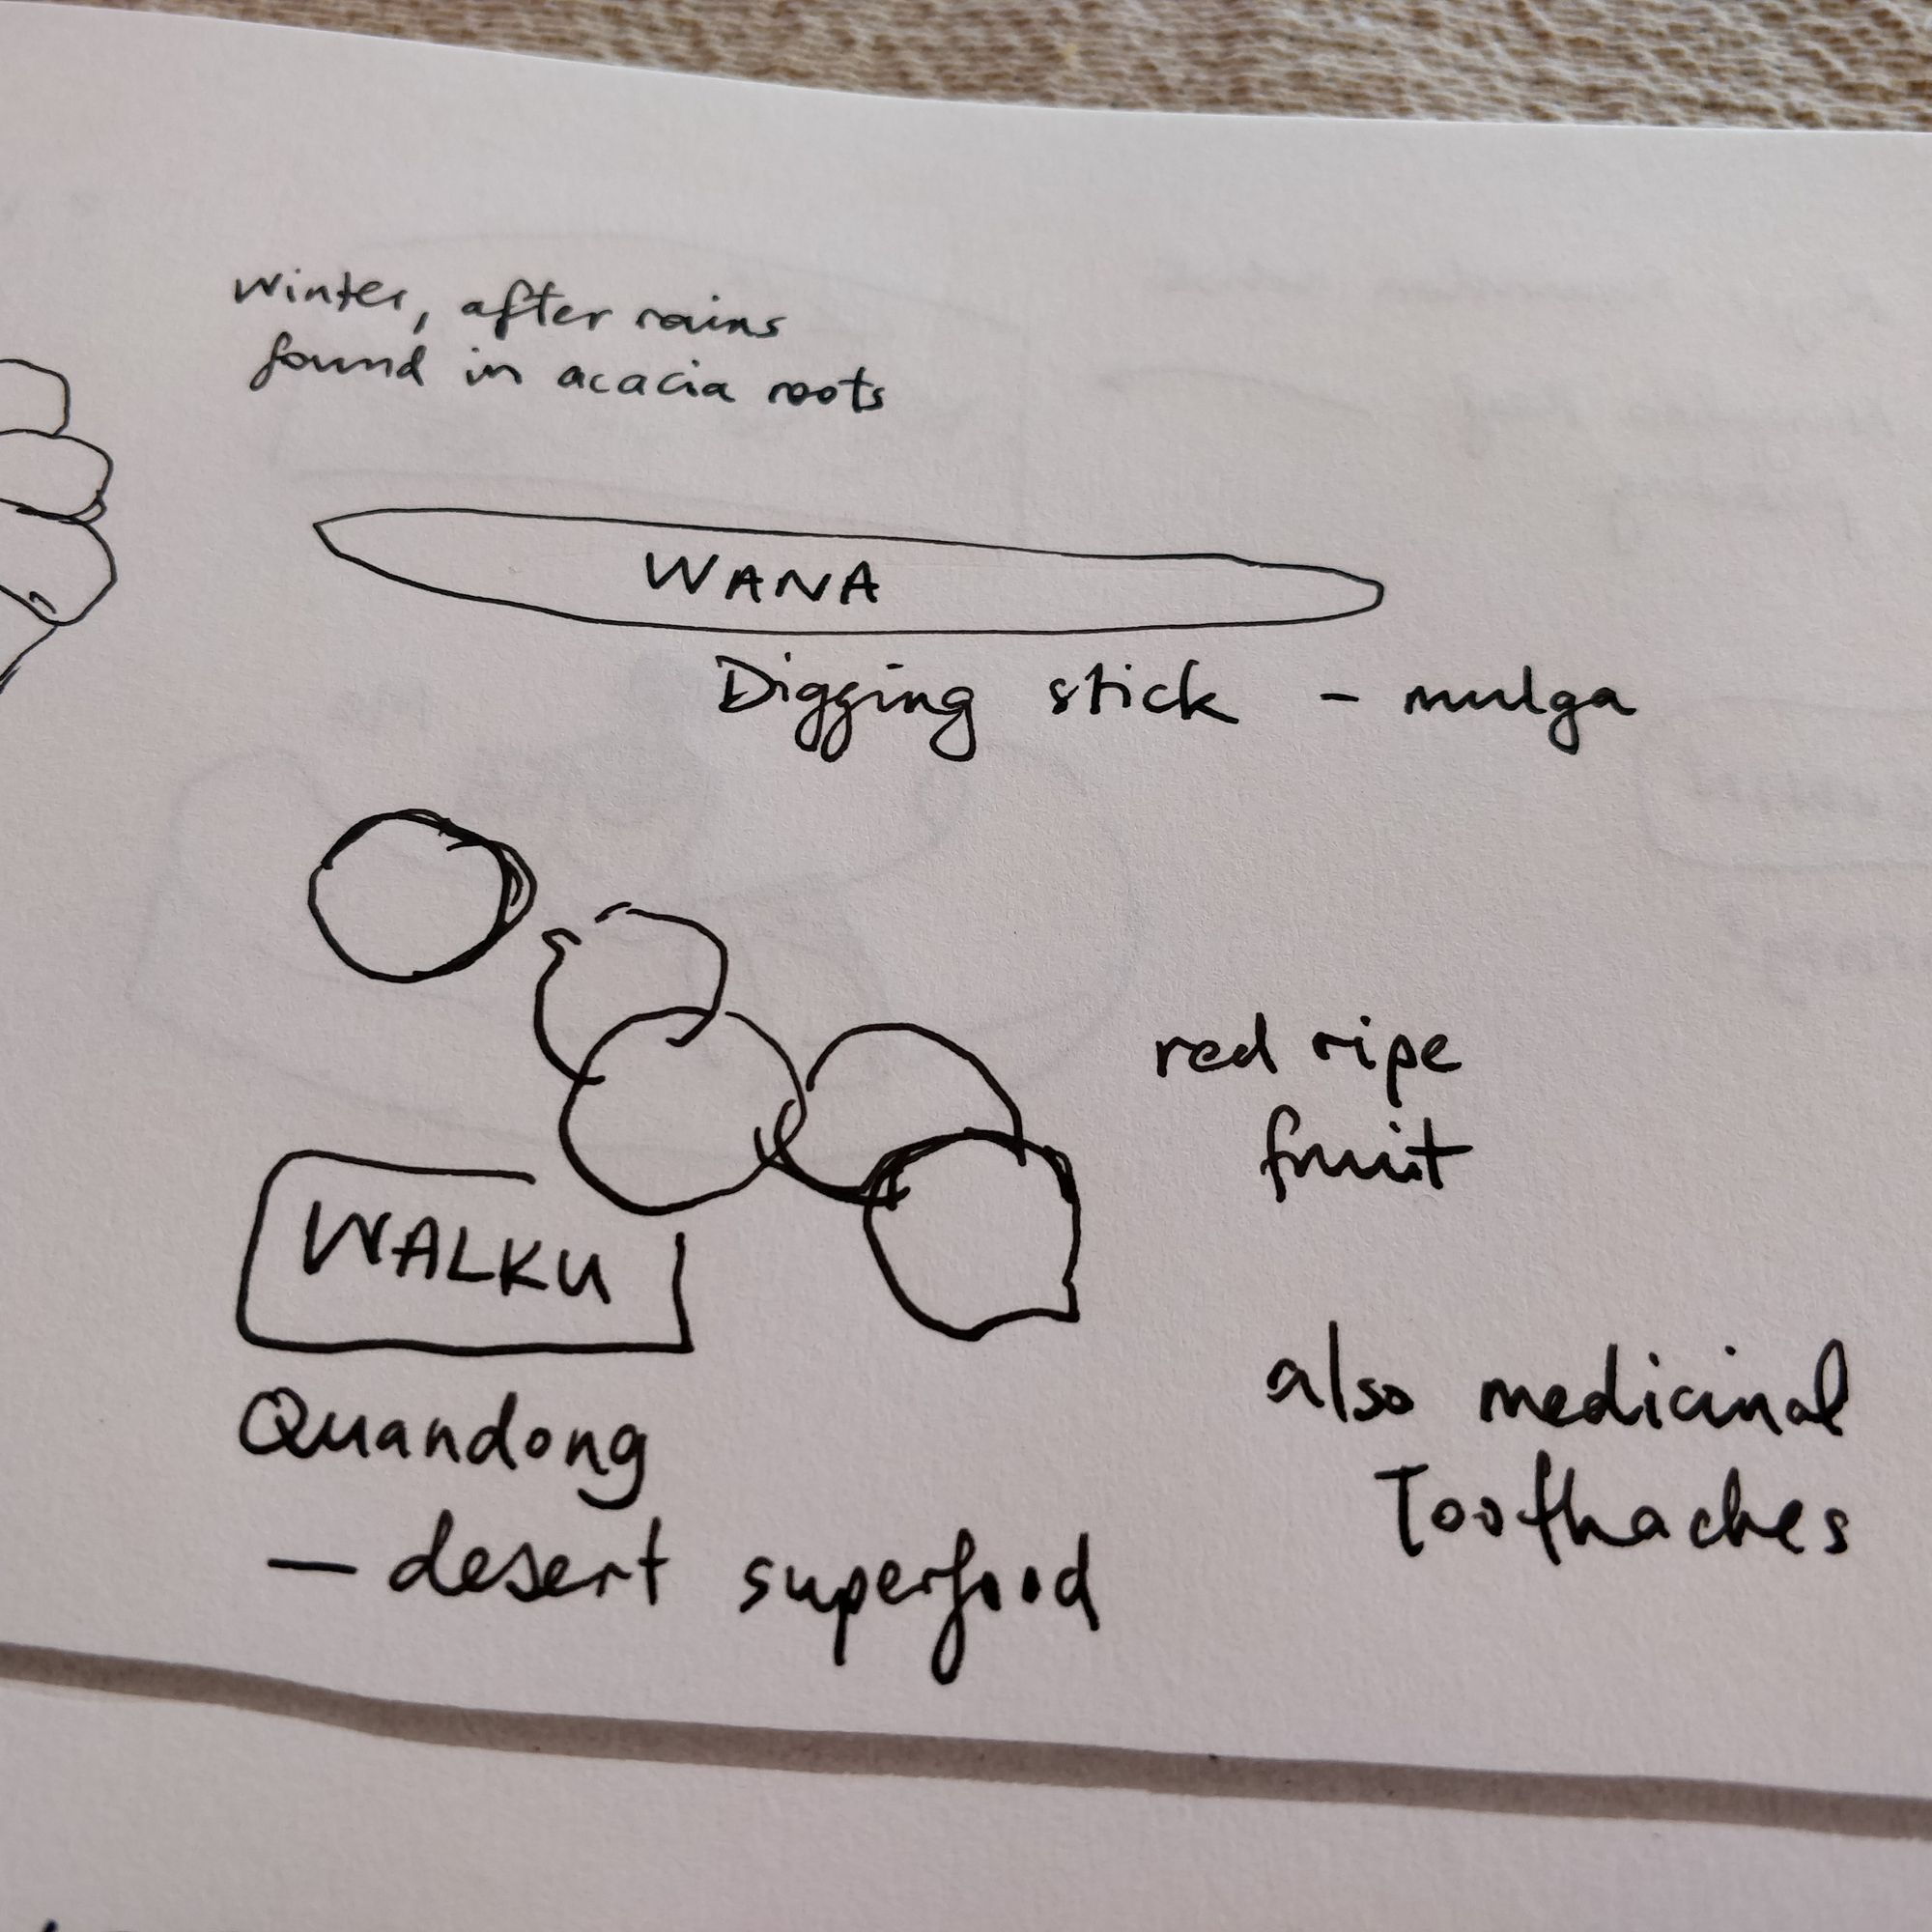 winter, after rains
found in acacia roots
WANA
Digging stick - mulga
red ripe
fruit
WALKU
Quandong
— desert superfood
also medicinal
Toothaches